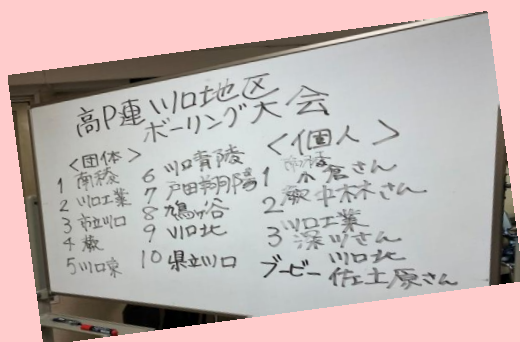 高P連 川口地区
ボーリング大会
＜団体＞
1 南稜
2 川口工業
3 市立川口
4 蕨
5 川口東
6 川口青陵
7 戸田翔陽
8 鳩ヶ谷
9 川口北
10 県立川口
＜個人＞
南稜
1 小倉さん
2 蕨 中林さん
川口工業
3 深川さん
川口北
ブービー 佐土原さん